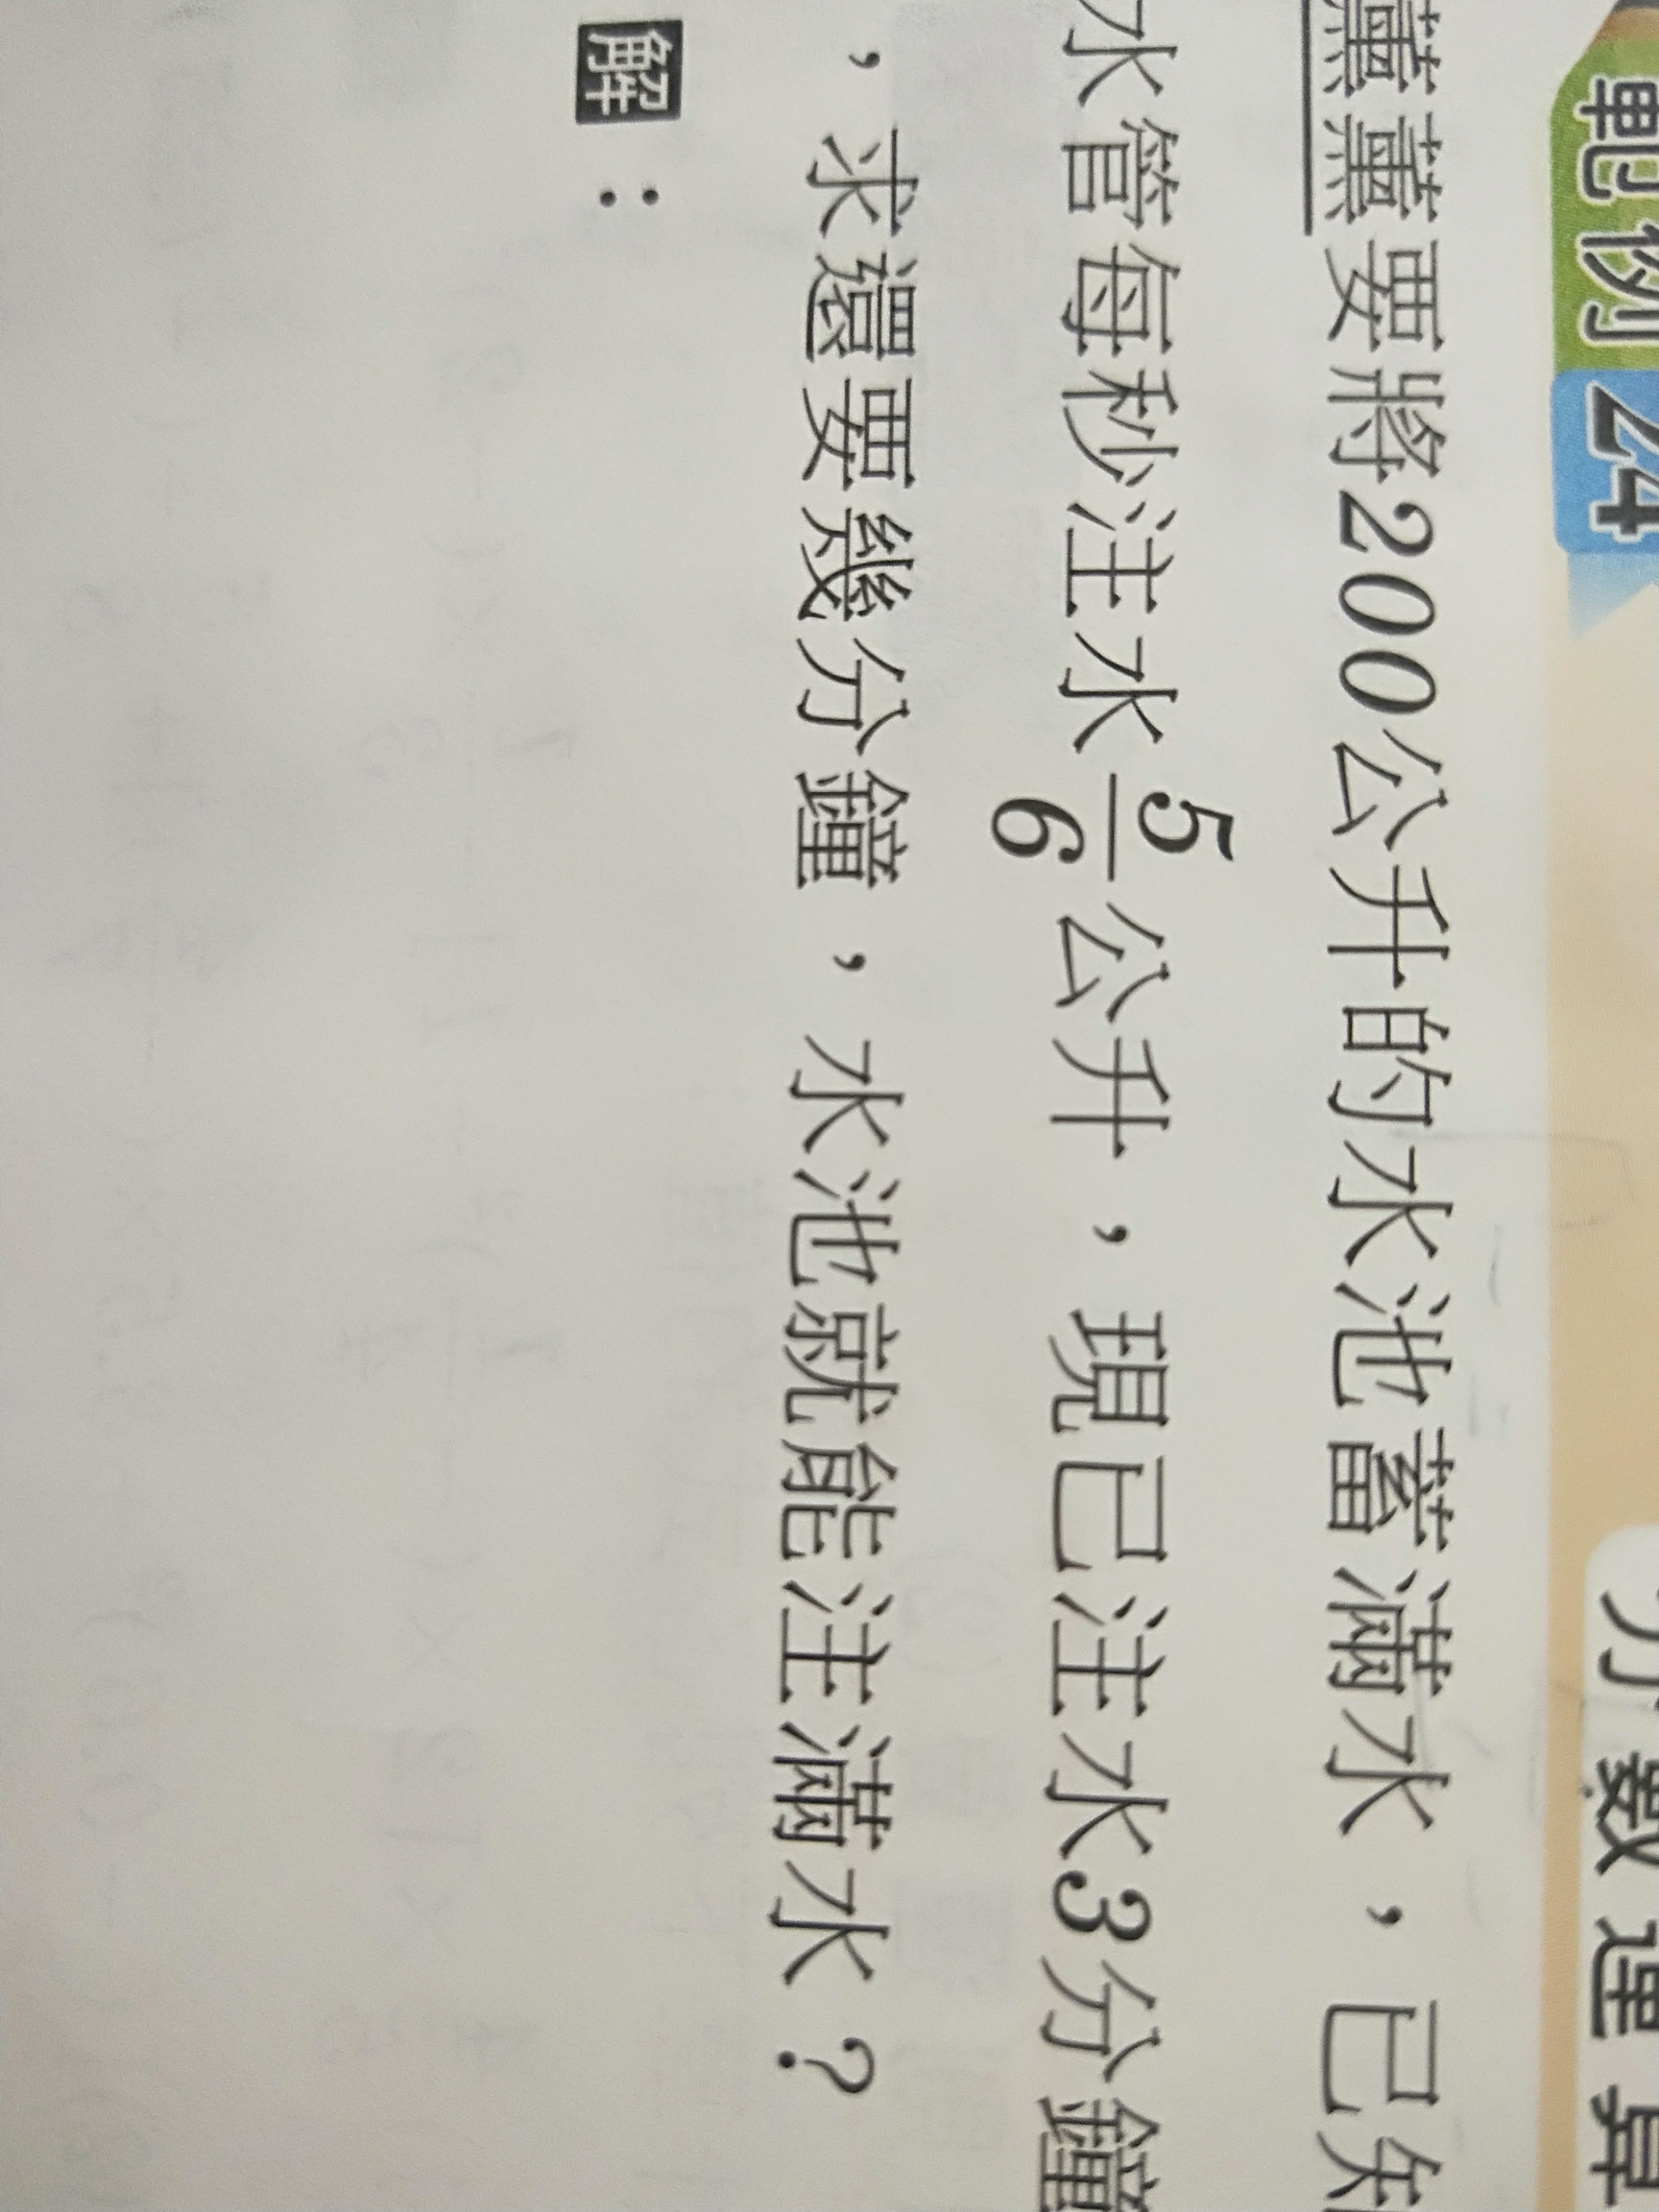 範例 24
分數運算
薰薰要將200公升的水池蓄滿水，已知
水管每秒注水5/6公升，現已注水3分鐘
，求還要幾分鐘，水池就能注滿水？
解：